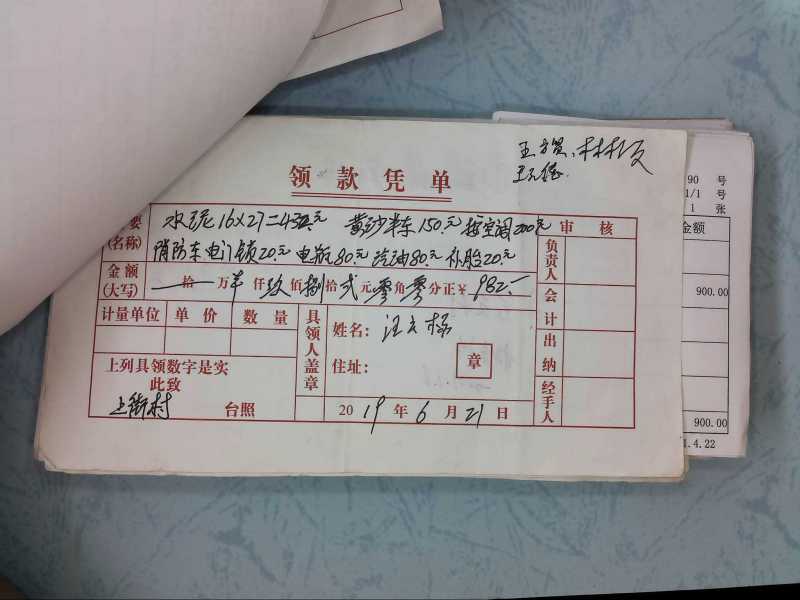 领款凭单
要 水泥16×27=432元 黄沙半车150元 接空调200元
(名称) 消防车电门锁20元 电瓶80元 汽油80元 补胎20元
金额
(大写) 拾 万 仟 玖 佰 捌 拾 贰 元 零 角 零 分正¥ 982
计量单位 单价 数量
具领人盖章
姓名:
住址:
章
上列具领数字是实
此致
上街村 台照
2019年6月21日
审核
负责人
会计
出纳
经手人
90 号
1/1 号
1 张
金额
900.00
900.00
.4.22